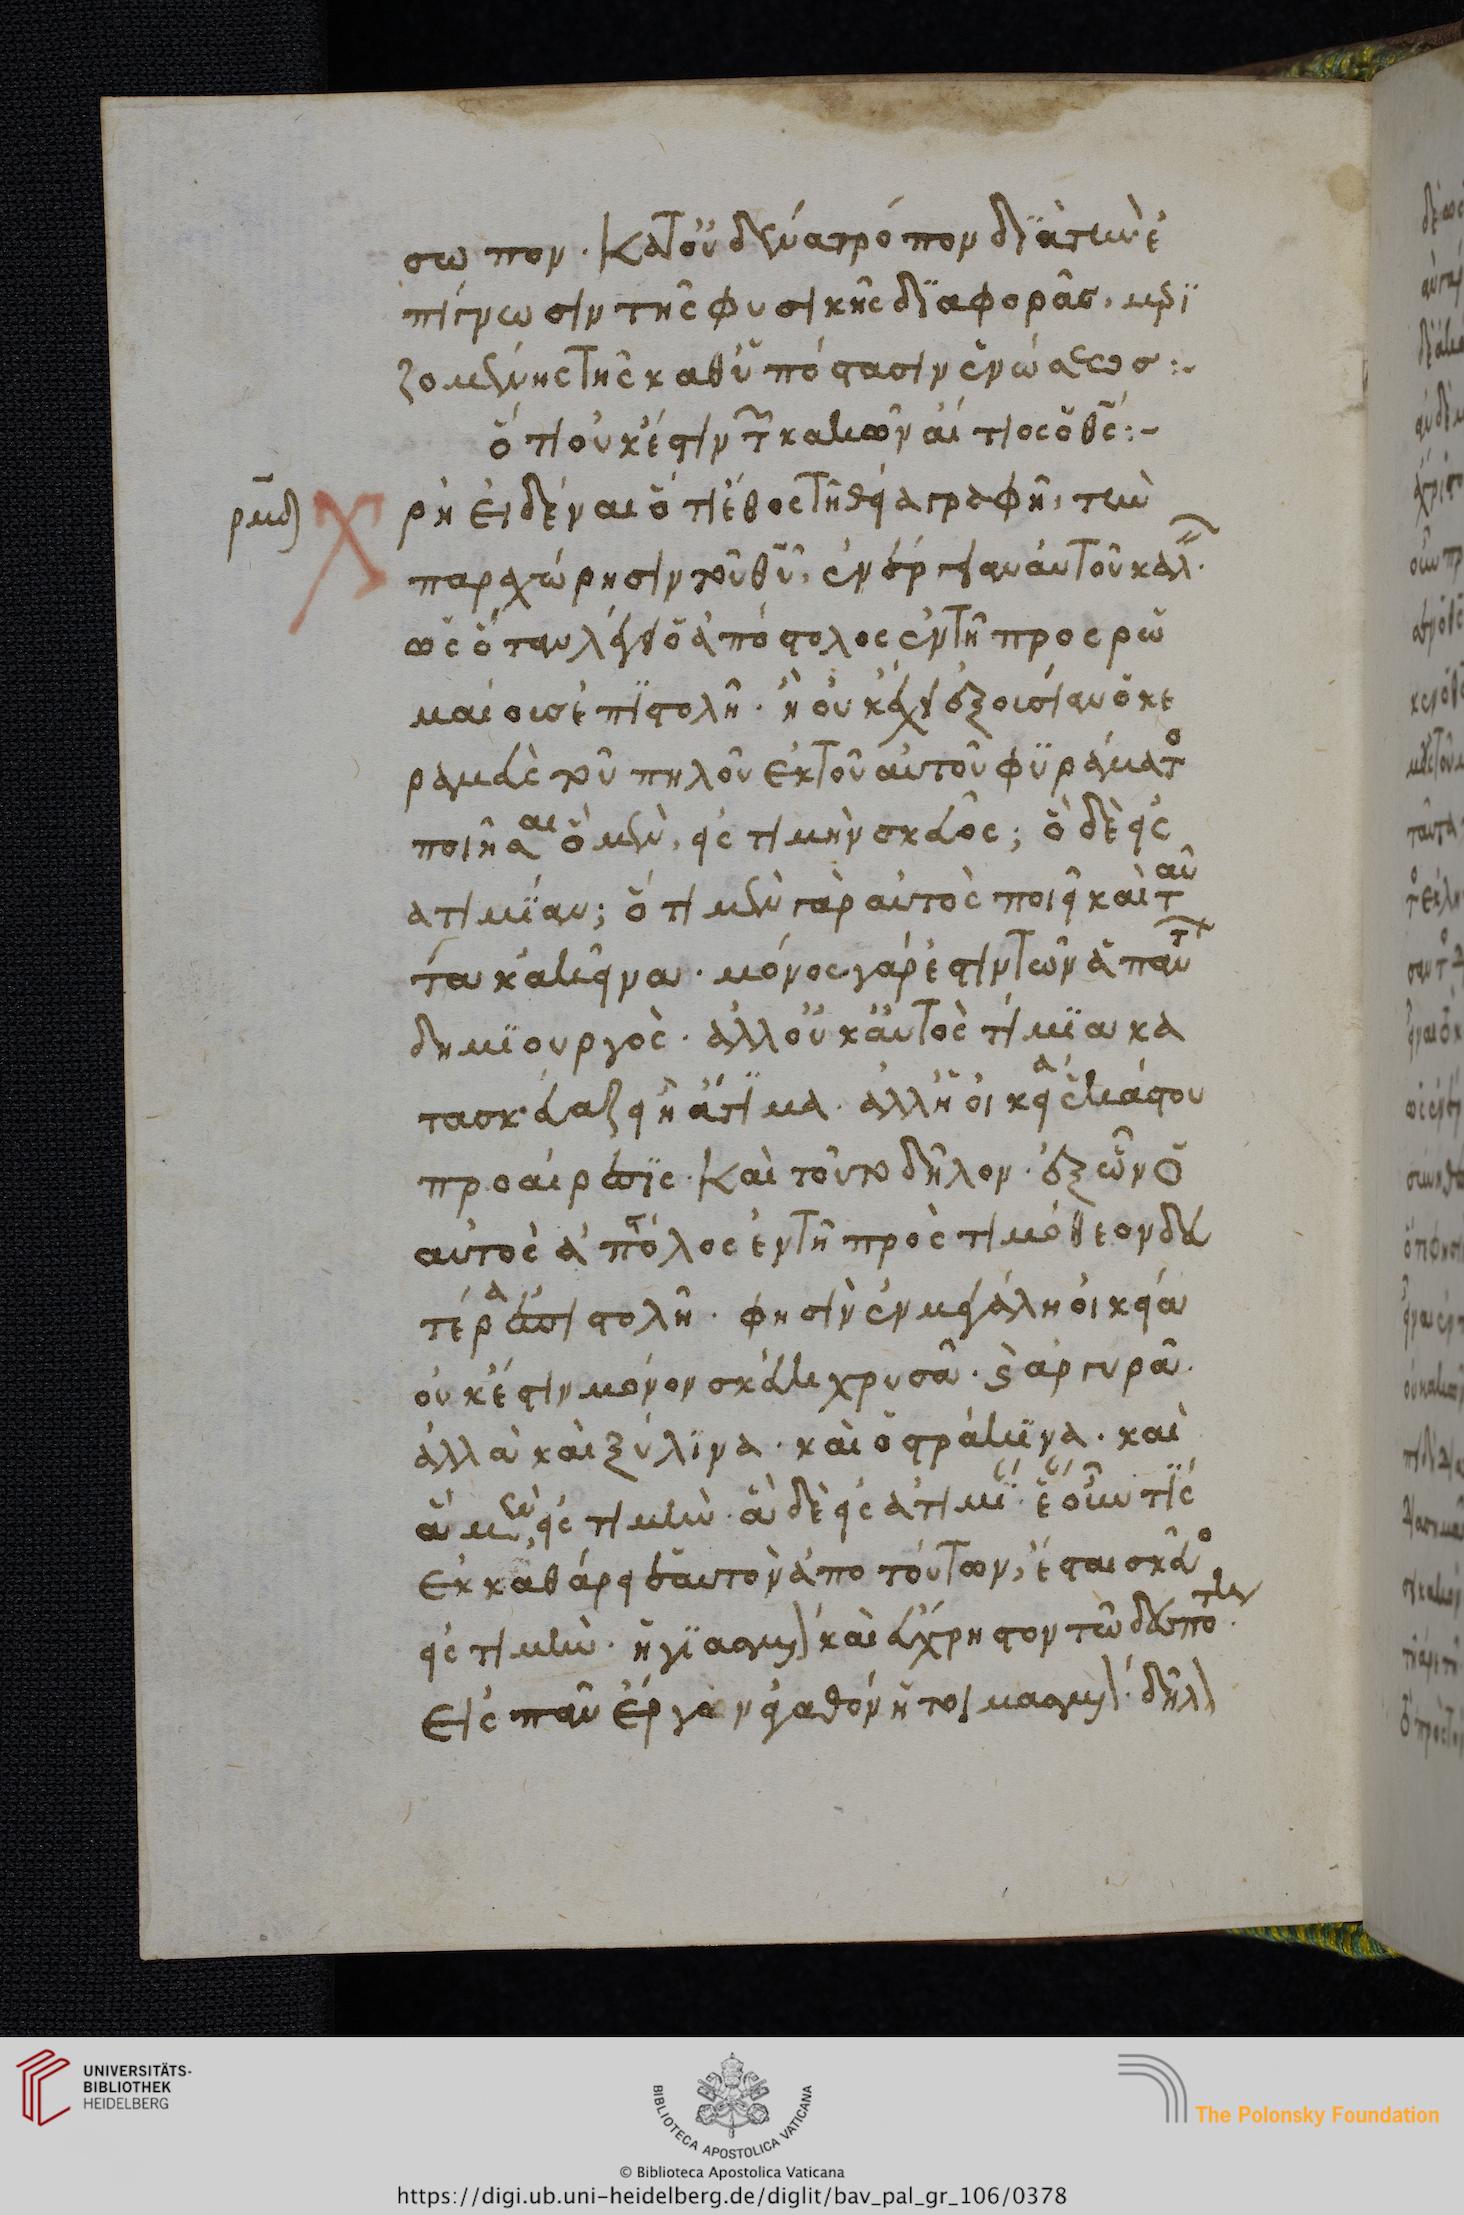 σωπον. κατ' οὐδένα τρόπον διὰ τὴν ἐ
πίγνωσιν τῆς φυσικῆς διαφορᾶς, μερι
ζομένης τῆς καθ' ὑπόστασιν ἑνώσεως :-
ὅτι οὐκ ἔστιν τῶν κακῶν αἴτιος ὁ θς :-
ρμδ
Χρὴ εἰδέναι ὅτι ἔθος τῇ θείᾳ γραφῇ, τὴν
παραχώρησιν τοῦ θυ, ἐνέργειαν αὐτοῦ καλ.
ὡς ὅταν λέγει ὁ ἀπόστολος ἐν τῇ πρὸς ρω
μαίοις ἐπιστολῇ. ἢ οὐκ ἔχει ἐξουσίαν ὁ κε
ραμεὺς τοῦ πηλοῦ ἐκ τοῦ αὐτοῦ φυράματο
ποιῆσαι ὃ μὲν, εἰς τιμὴν σκεῦος; ὃ δὲ εἰς
ατιμίαν; ὅτι μὲν γὰρ αὐτὸς ποιεῖ καὶ ταῦ
τα κἀκεῖνα. μόνος γάρ ἐστιν τῶν ἁπάντ
δημιουργὸς. ἀλλ' οὐκ αὐτὸς τίμια κα
τασκευάζει ἢ ἄτιμα. ἀλλ' ἡ οἰκεία ἑκάστου
προαίρεσις. καὶ τοῦτο δῆλον. ἐξ ὧν ὁ
αὐτὸς ἀπόστολος ἐν τῇ πρὸς τιμόθεον δευ
τέρα ἐπιστολῇ. φησὶν ἐν μεγάλη οἰκεία
οὐκ ἔστιν μόνον σκεύη χρυσᾶ. καὶ ἀργυρᾶ.
ἀλλὰ καὶ ξύλινα. καὶ ὀστράκινα. καὶ
ἃ μὲν, εἰς τιμὴν. ἃ δὲ εἰς ἀτιμί. ἐὰν οὖν τὶς
εκκαθάρει ἑαυτὸν ἀπο τούτων, ἔσται σκεῦο
εἰς τιμὴν. ἡγιασμέν καὶ εὔχρηστον τῶ δεσπότην.
εἰς πᾶν ἔργον ἀγαθόν ἡτοιμασμέν. δῆλ
UNIVERSITÄTS-
BIBLIOTHEK
HEIDELBERG
BIBLIOTECA APOSTOLICA VATICANA
© Biblioteca Apostolica Vaticana
The Polonsky Foundation
https://digi.ub.uni-heidelberg.de/diglit/bav_pal_gr_106/0378